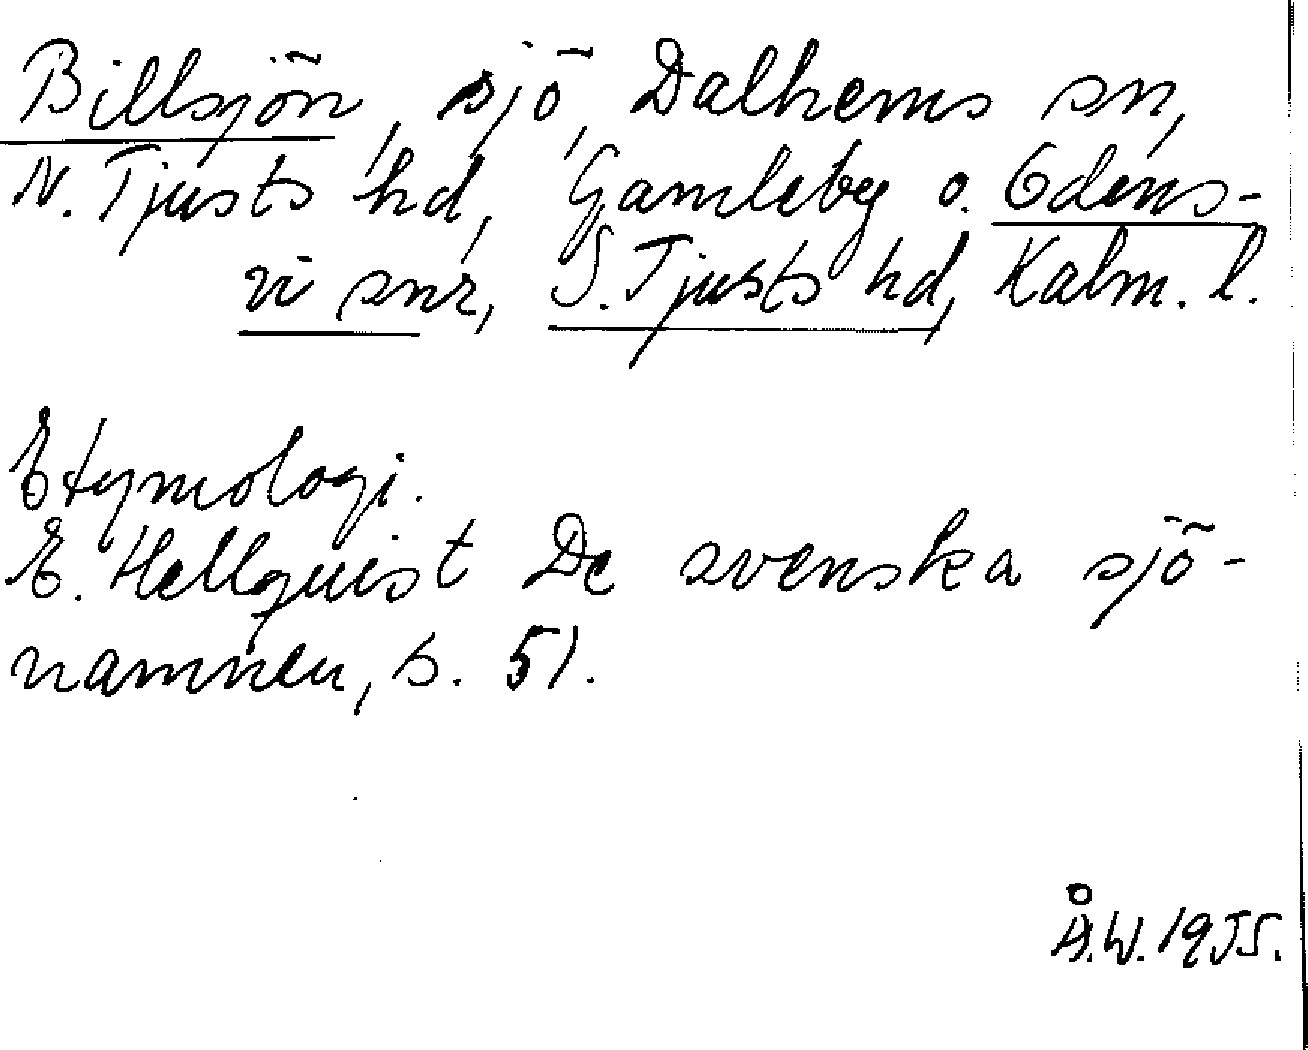 Billsjön, sjö, Dalhems sn,
N. Tjusts hd, Gamleby o. Odens-
vi snr, S. Tjusts hd, Kalm. l.
Etymologi.
E. Hellquist De svenska sjö-
namnen, s. 51.
Å.W. 1955.